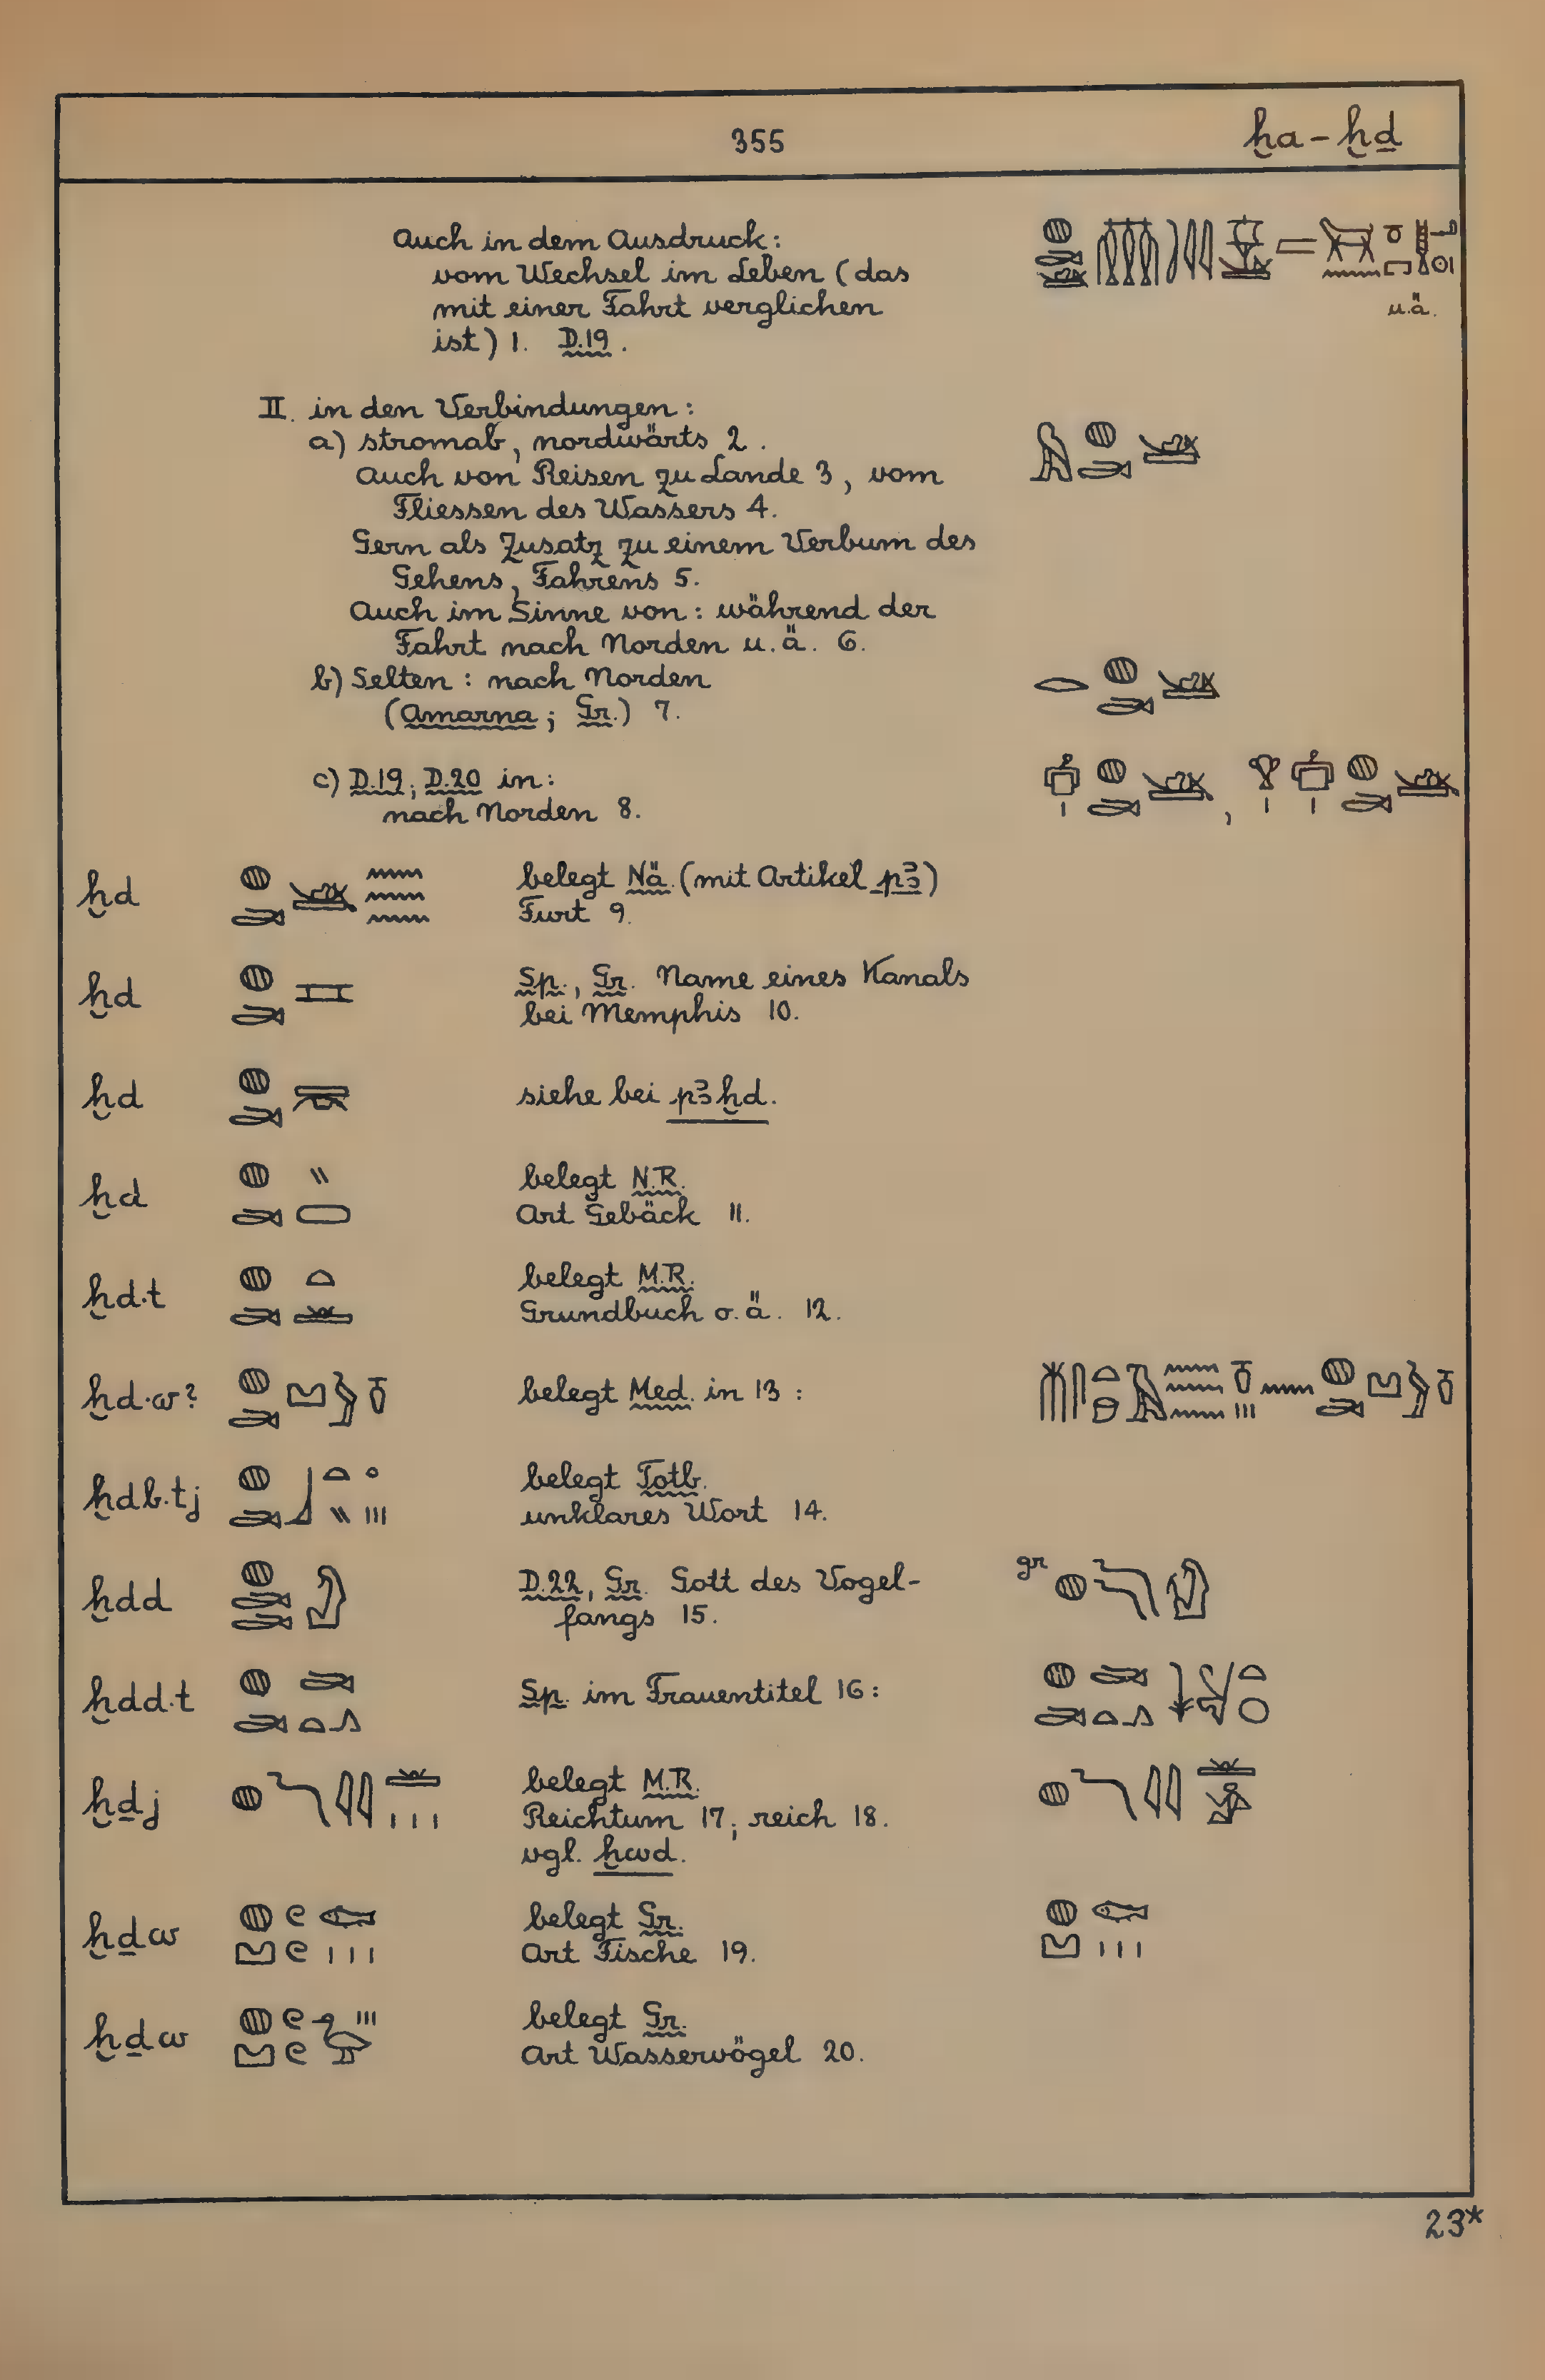 355
ḫa - ḫḏ
Auch in dem Ausdruck:
vom Wechsel im Leben (das
mit einer Fahrt verglichen
u.ä.
ist) 1. D.19.
II. in den Verbindungen:
a) stromab, nordwärts 2.
Auch von Reisen zu Lande 3, vom
Fliessen des Wassers 4.
Gern als Zusatz zu einem Verbum des
Gehens, Fahrens 5.
Auch im Sinne von: während der
Fahrt nach Norden u.ä. 6.
b) Selten: nach Norden
(Amarna; Gr.) 7.
c) D.19; D.20 in:
nach Norden 8.
ḫd belegt Nä. (mit Artikel pꜣ)
Furt 9.
ḫd Sp., Gr. Name eines Kanals
bei Memphis 10.
ḫd siehe bei pꜣ ḫd.
ḫd belegt N.R.
Art Gebäck 11.
ḫd.t belegt M.R.
Grundbuch o.ä. 12.
ḫd.w? belegt Med. in 13:
ḫdb.tj belegt Totb.
unklares Wort 14.
ḫdd D.22, Gr. Gott des Vogel-
fangs 15. gr
ḫdd.t Sp. im Frauentitel 16:
ḫḏj belegt M.R.
Reichtum 17; reich 18.
vgl. ḫwd.
ḫḏw belegt Gr.
Art Fische 19.
ḫḏw belegt Gr.
Art Wasservögel 20.
23*